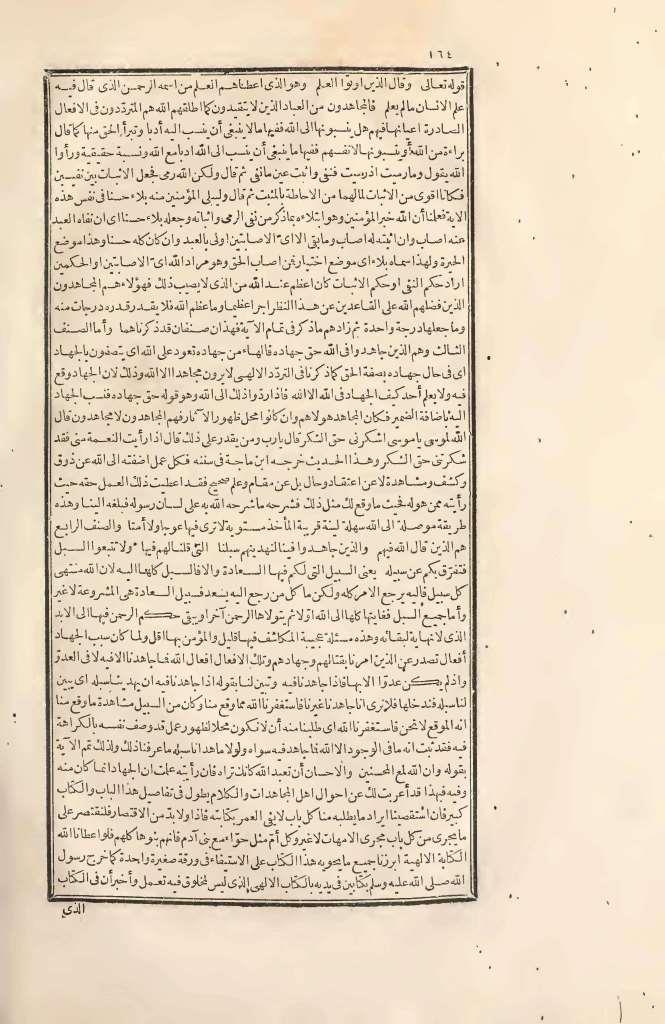 ١٦٤
قوله تعالى وقال الذين اوتوا العلم وهو الذى اعطاهم العلم من اسمه الرحمن الذى قال فيه
علم الانسان مالم يعلم فالمجاهدون من العباد الذين لا يتقيدون كما اطلقهم الله هم المترددون فى الافعال
الصادرة اعيانها فيهم هل ينسبونها الى الله ففيها ما لا ينبغى أن ينسب اليه أدبا وتبرأ الحق منها كما قال
براءة من الله أو ينسبونها لانفسهم ففيها ما ينبغى أن ينسب الى الله ادبا مع الله ونسبة حقيقية ورأوا
الله يقول وما رميت اذ رميت فنفى واثبت عين ما نفى ثم قال ولكن الله رمى فجعل الاثبات بين نفيين
فكانا اقوى من الاثبات لما لهما من الاحاطة بالمثبت ثم قال وليبلى المؤمنين منه بلاء حسنا فى نفس هذه
الاية فعلمنا أن الله خير المؤمنين وهو ابتلاءه بما ذكر من نفى الرمى واثباته وجعله بلاء حسنا اى ان نفاه العبد
عنه اصاب وان اثبته له اصاب وما بقى الا اىّ الاصابتين اولى بالعبد وان كان كله حسنا وهذا موضع
الحيرة ولهذا سماه بلاء اى موضع اختبار فمن اصاب الحق وهو مراد الله اىّ الاصابتين او الحكمين
اراد حكم النفى او حكم الاثبات كان اعظم عند الله من الذى لا يصيب ذلك فهؤلاء هم المجاهدون
الذين فضلهم الله على القاعدين عن هذا النظر اجرا عظيما وما عظم الله فلا يقدر قدره درجات منه
وما جعلها درجة واحدة ثم زادهم ما ذكر فى تمام الآية فهذان صنفان قد ذكرناهما وأما الصنف
الثالث وهم الذين جاهدوا فى الله حق جهاده فالهاء من جهاده تعود على الله اى يتصفون بالجهاد
اى فى حال جهاده بصفة الحق كما ذكرنا فى التردد الالهى لا يرون مجاهدا الا الله وذلك لان الجهاد وقع
فيه ولا يعلم أحد كيف الجهاد فى الله الا الله فاذا ردّوا ذلك الى الله وهو قوله حق جهاده فنسب الجهاد
اليه باضافة الضمير فكان المجاهد هو لا هم وان كانوا محل ظهور الآثار فهم المجاهدون لا مجاهدون قال
الله لموسى يا موسى اشكرنى حق الشكر قال يا رب ومن يقدر على ذلك قال اذا رأيت النعمة منى فقد
شكرتنى حق الشكر وهذا الحديث خرجه ابن ماجة فى سننه فكل عمل اضفته الى الله عن ذوق
وكشف ومشاهدة لا عن اعتقاد وحال بل عن مقام وعلم صحيح فقد اعطيت ذلك العمل حقه حيث
رأيته ممن هو له فحيث ما وقع لك مثل ذلك فشرحه ما شرحه الله به على لسان رسوله فبلغه الينا وهذه
طريقة موصلة الى الله سهلة لينة قريبة المأخذ مستوية لا ترى فيها عوجا ولا أمتا والصنف الرابع
هم الذين قال الله فيهم والذين جاهدوا فينا لنهدينهم سبلنا التى قلنا لهم فيها ولا تتبعوا السبل
فتفرق بكم عن سبيله يعنى السبيل التى لكم فيها السعادة والا فالسبل كلها اليه لان الله منتهى
كل سبيل فاليه يرجع الامر كله ولكن ما كل من رجع اليه يسعد فسبيل السعادة هى المشروعة لا غير
وأما جميع السبل فغايتها كلها الى الله اوّلا ثم يتولاها الرحمن آخرا ويبقى حكم الرحمن فيها الى الابد
الذى لا نهاية لبقائه وهذه مسئلة عجيبة المكاشف فيها قليل والمؤمن بها اقل ولما كان سبب الجهاد
أفعال تصدر عن الذين امرنا بقتالهم وجهادهم وتلك الافعال افعال الله فما جاهدنا الا فيه لا فى العدوّ
واذ لم يكن عدوّا الا بها فاذا جاهدنا فيه وتبين لنا بقوله اذا جاهدنا فيه ان يهدينا سبله اى يبين
لنا سبله فندخلها فلا نرى انا جاهدنا غيرنا فاستغفرنا الله مما وقع منا وكان من السبيل مشاهدة ما وقع منا
انه الموقع لا نحن فاستغفرنا الله اى طلبنا منه أن لا نكون محلا لظهور عمل قد وصف نفسه بالكراهة
فيه فقد ثبت انه ما فى الوجود الا الله فما جاهد فيه سواه ولولا ما هدانا سبله ما عرفنا ذلك ولذلك تمم الآية
بقوله وان الله لمع المحسنين والاحسان أن تعبد الله كانك تراه فان رأيته علمت ان الجهاد انما كان منه
وفيه فبهذا قد أعربت لك عن احوال اهل المجاهدات والكلام يطول فى تفاصيل هذا الباب والكتاب
كبير فان استقصينا ايراد ما يطلبه منا كل باب لا يفى العمر بكتابته فاذا ولابدّ من الاقتصار فلنقتصر على
ما يجرى من كل باب مجرى الامهات لا غير وكل أمّ مثل حوّاء مع بنى آدم فانهم بنوها كلهم فلو اعطانا الله
الكتابة الالهية ابرزنا جميع ما يحويه هذا الكتاب على الاستيفاء فى ورقة صغيرة واحدة كما خرج رسول
الله صلى الله عليه وسلم بكتابين فى يديه بالكتاب الالهى الذى ليس لمخلوق فيه تعمل وأخبر أن فى الكتاب
الذى